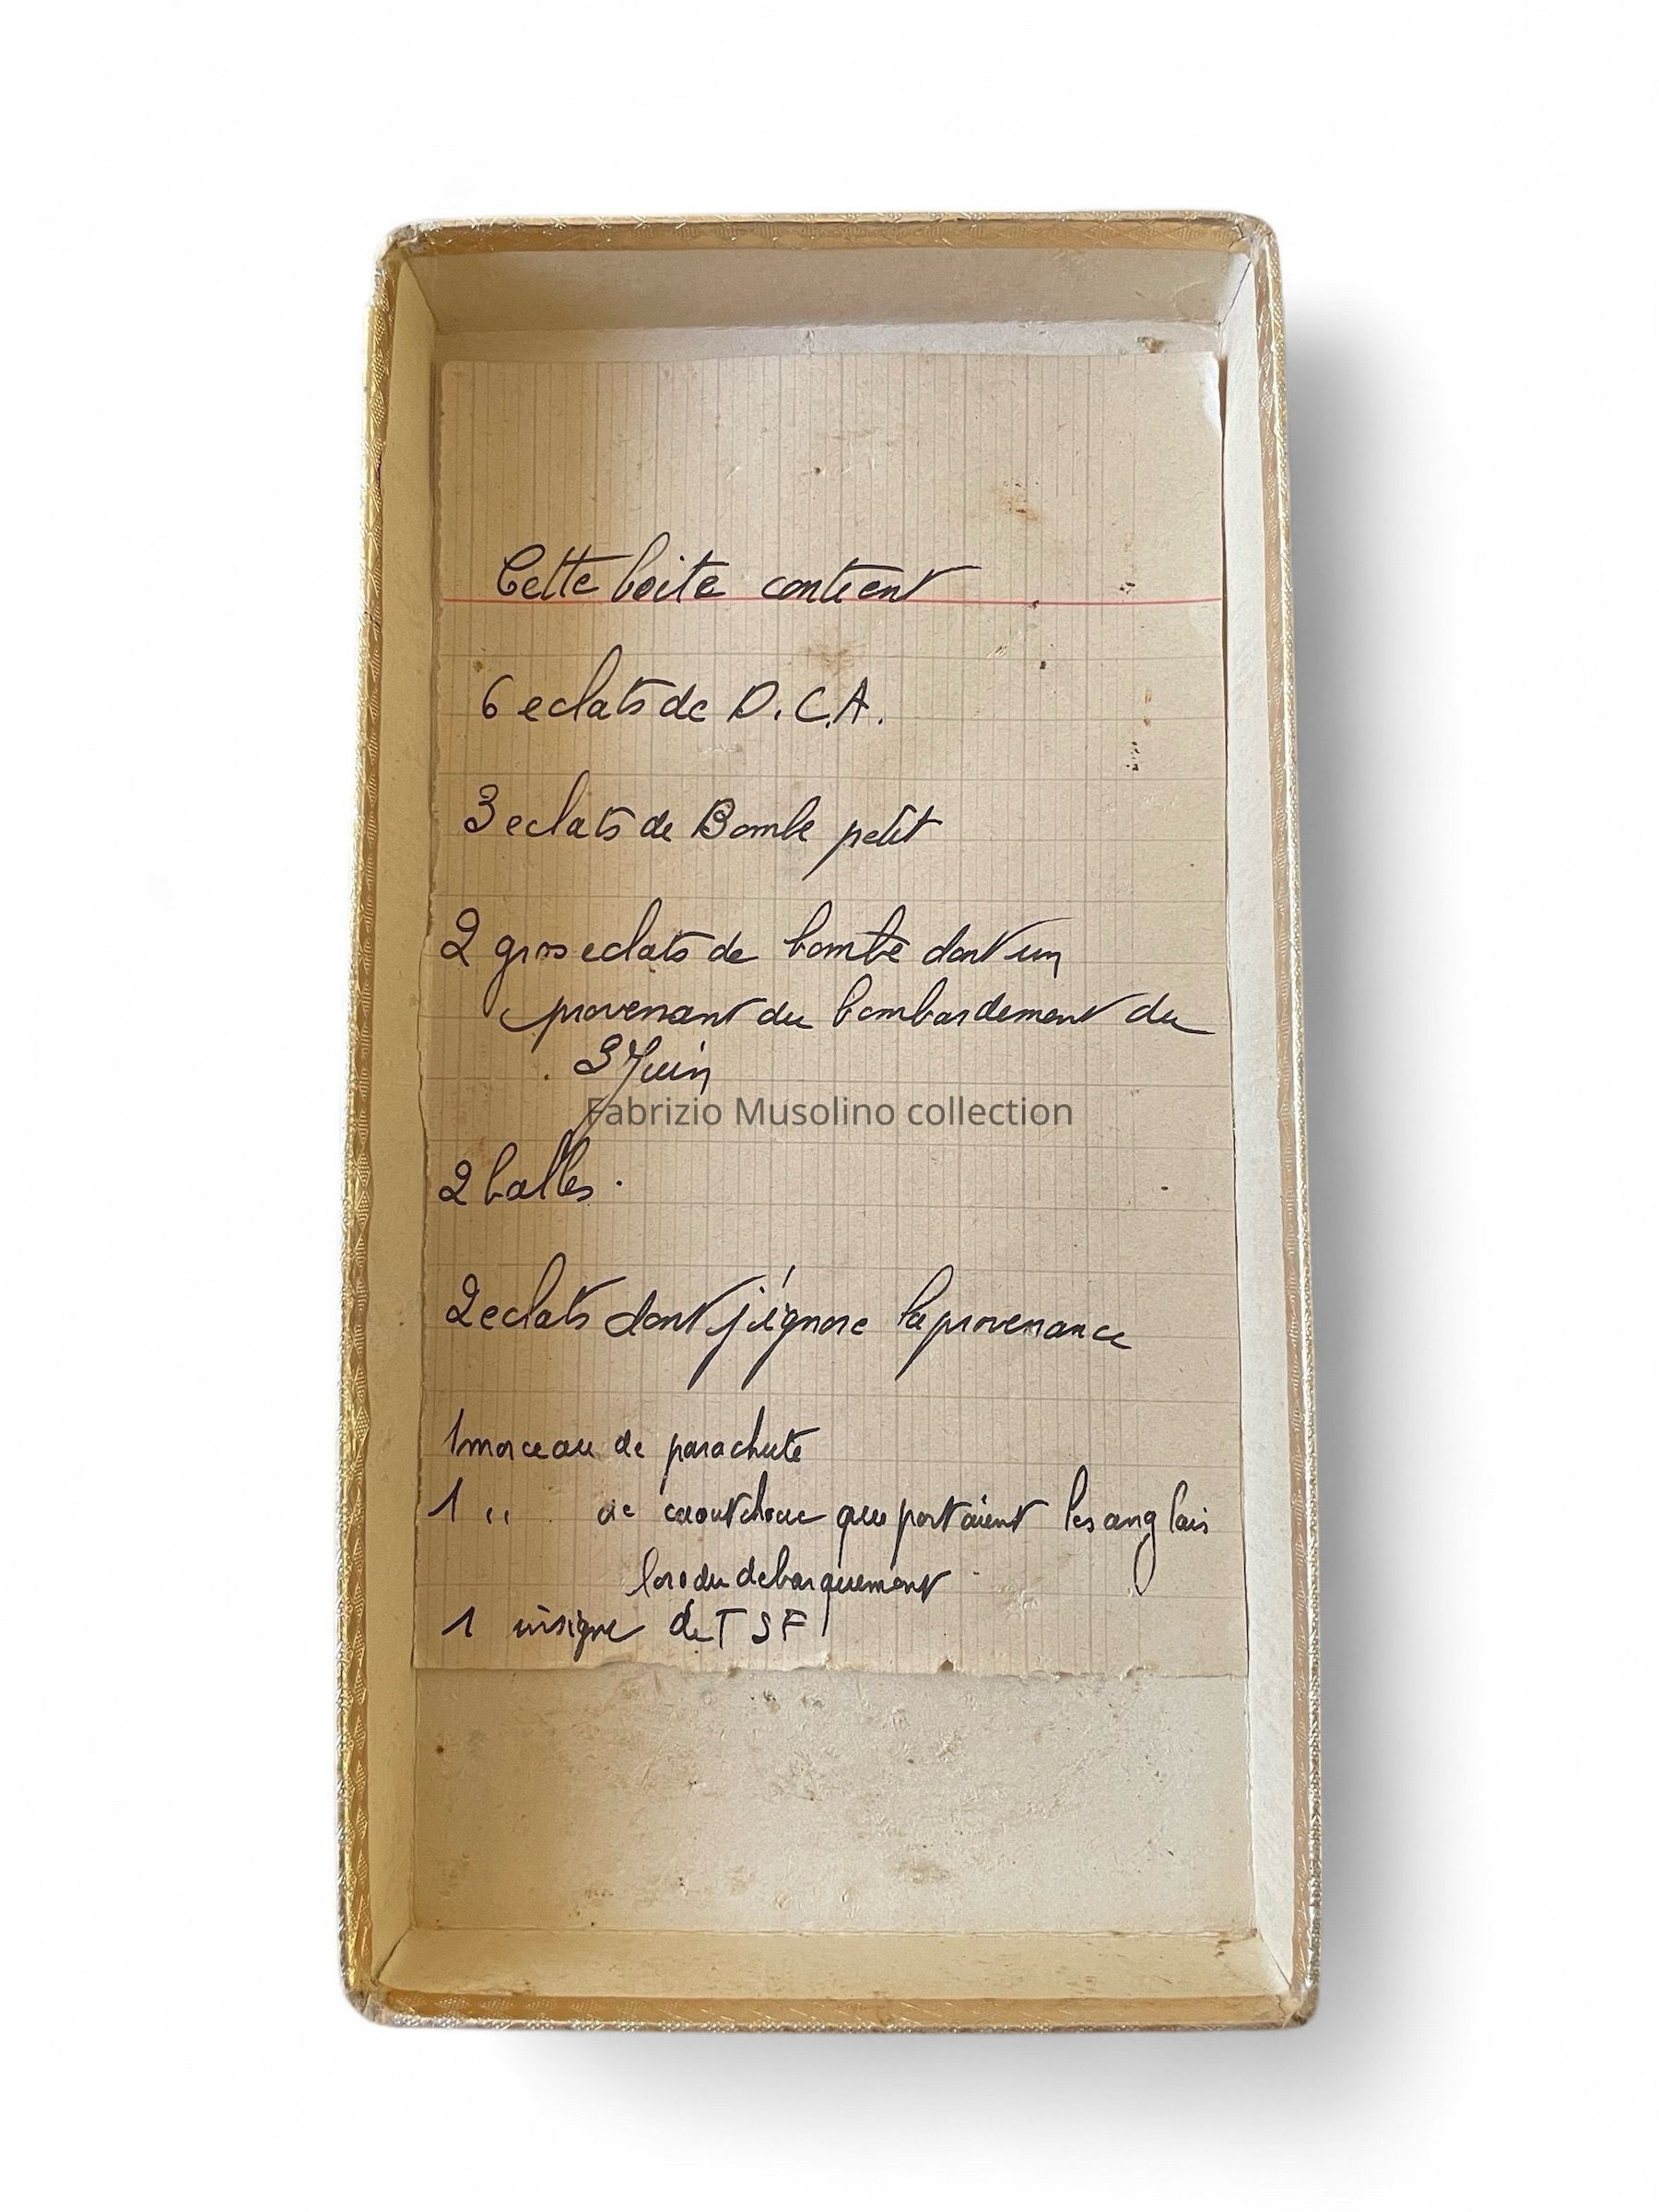 Cette boite contient
6 eclats de D.C.A.
3 eclats de Bombe petit
2 gros eclats de bombe dont un
provenant du bombardement du
3 Juin
Fabrizio Musolino collection
2 balles.
2 eclats dont j'ignore la provenance
1 morceau de parachute
1 " de caoutchouc que portaient les anglais
lors du debarquement
1 insigne de TSF